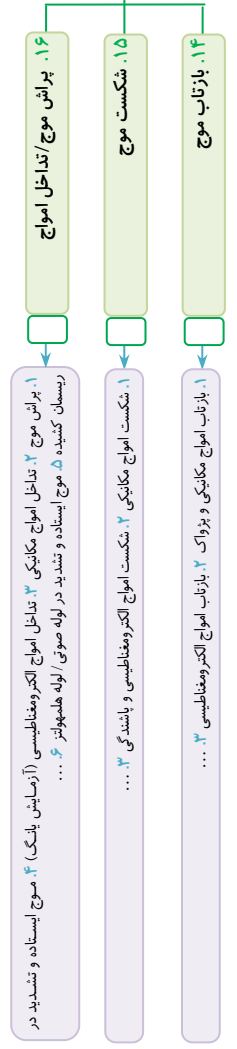 ۱۴. بازتاب موج
۱. بازتاب امواج مکانیکی و پژواک ۲. بازتاب امواج الکترومغناطیسی ۳. ...
۱۵. شکست موج
۱. شکست امواج مکانیکی ۲. شکست امواج الکترومغناطیسی و پاشندگی ۳. ...
۱۶. پراش موج/تداخل امواج
۱. پراش موج ۲. تداخل امواج مکانیکی ۳. تداخل امواج الکترومغناطیسی (آزمایش یانگ) ۴. موج ایستاده و تشدید در
ریسمان کشیده ۵. موج ایستاده و تشدید در لوله صوتی/لوله هلمهولتز ۶. ...